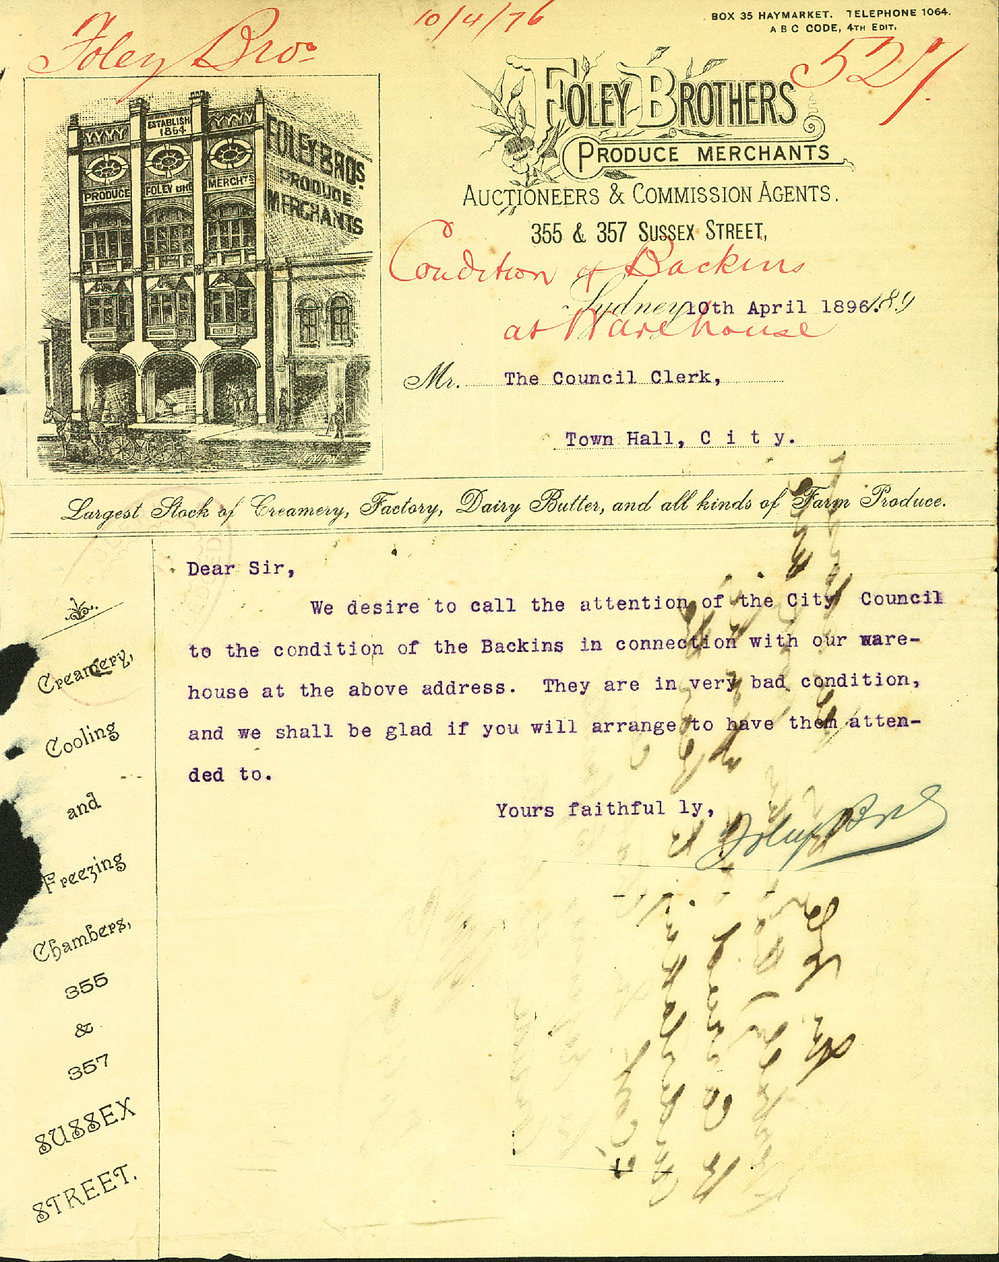 Foley Bros
10/4/76
BOX 35 HAYMARKET. TELEPHONE 1064.
A B C CODE, 4TH EDIT.
527/.
FOLEY BROTHERS
PRODUCE MERCHANTS
AUCTIONEERS & COMMISSION AGENTS.
355 & 357 SUSSEX STREET,
Condition of Backins
Sydney 10th April 1896. 189
at Warehouse
ESTABLISH
1864
PRODUCE FOLEY BRO MERCHTS
FOLEY BROS
PRODUCE
MERCHANTS
Mr. The Council Clerk,
Town Hall, C i t y.
Largest Stock of Creamery, Factory, Dairy Butter, and all kinds of Farm Produce.
Dear Sir,
We desire to call the attention of the City Council
to the condition of the Backins in connection with our ware-
house at the above address. They are in very bad condition,
and we shall be glad if you will arrange to have them atten-
ded to.
Yours faithful ly,
Foley Bros
Creamery,
Cooling
and
Freezing
Chambers,
355
&
357
SUSSEX
STREET.